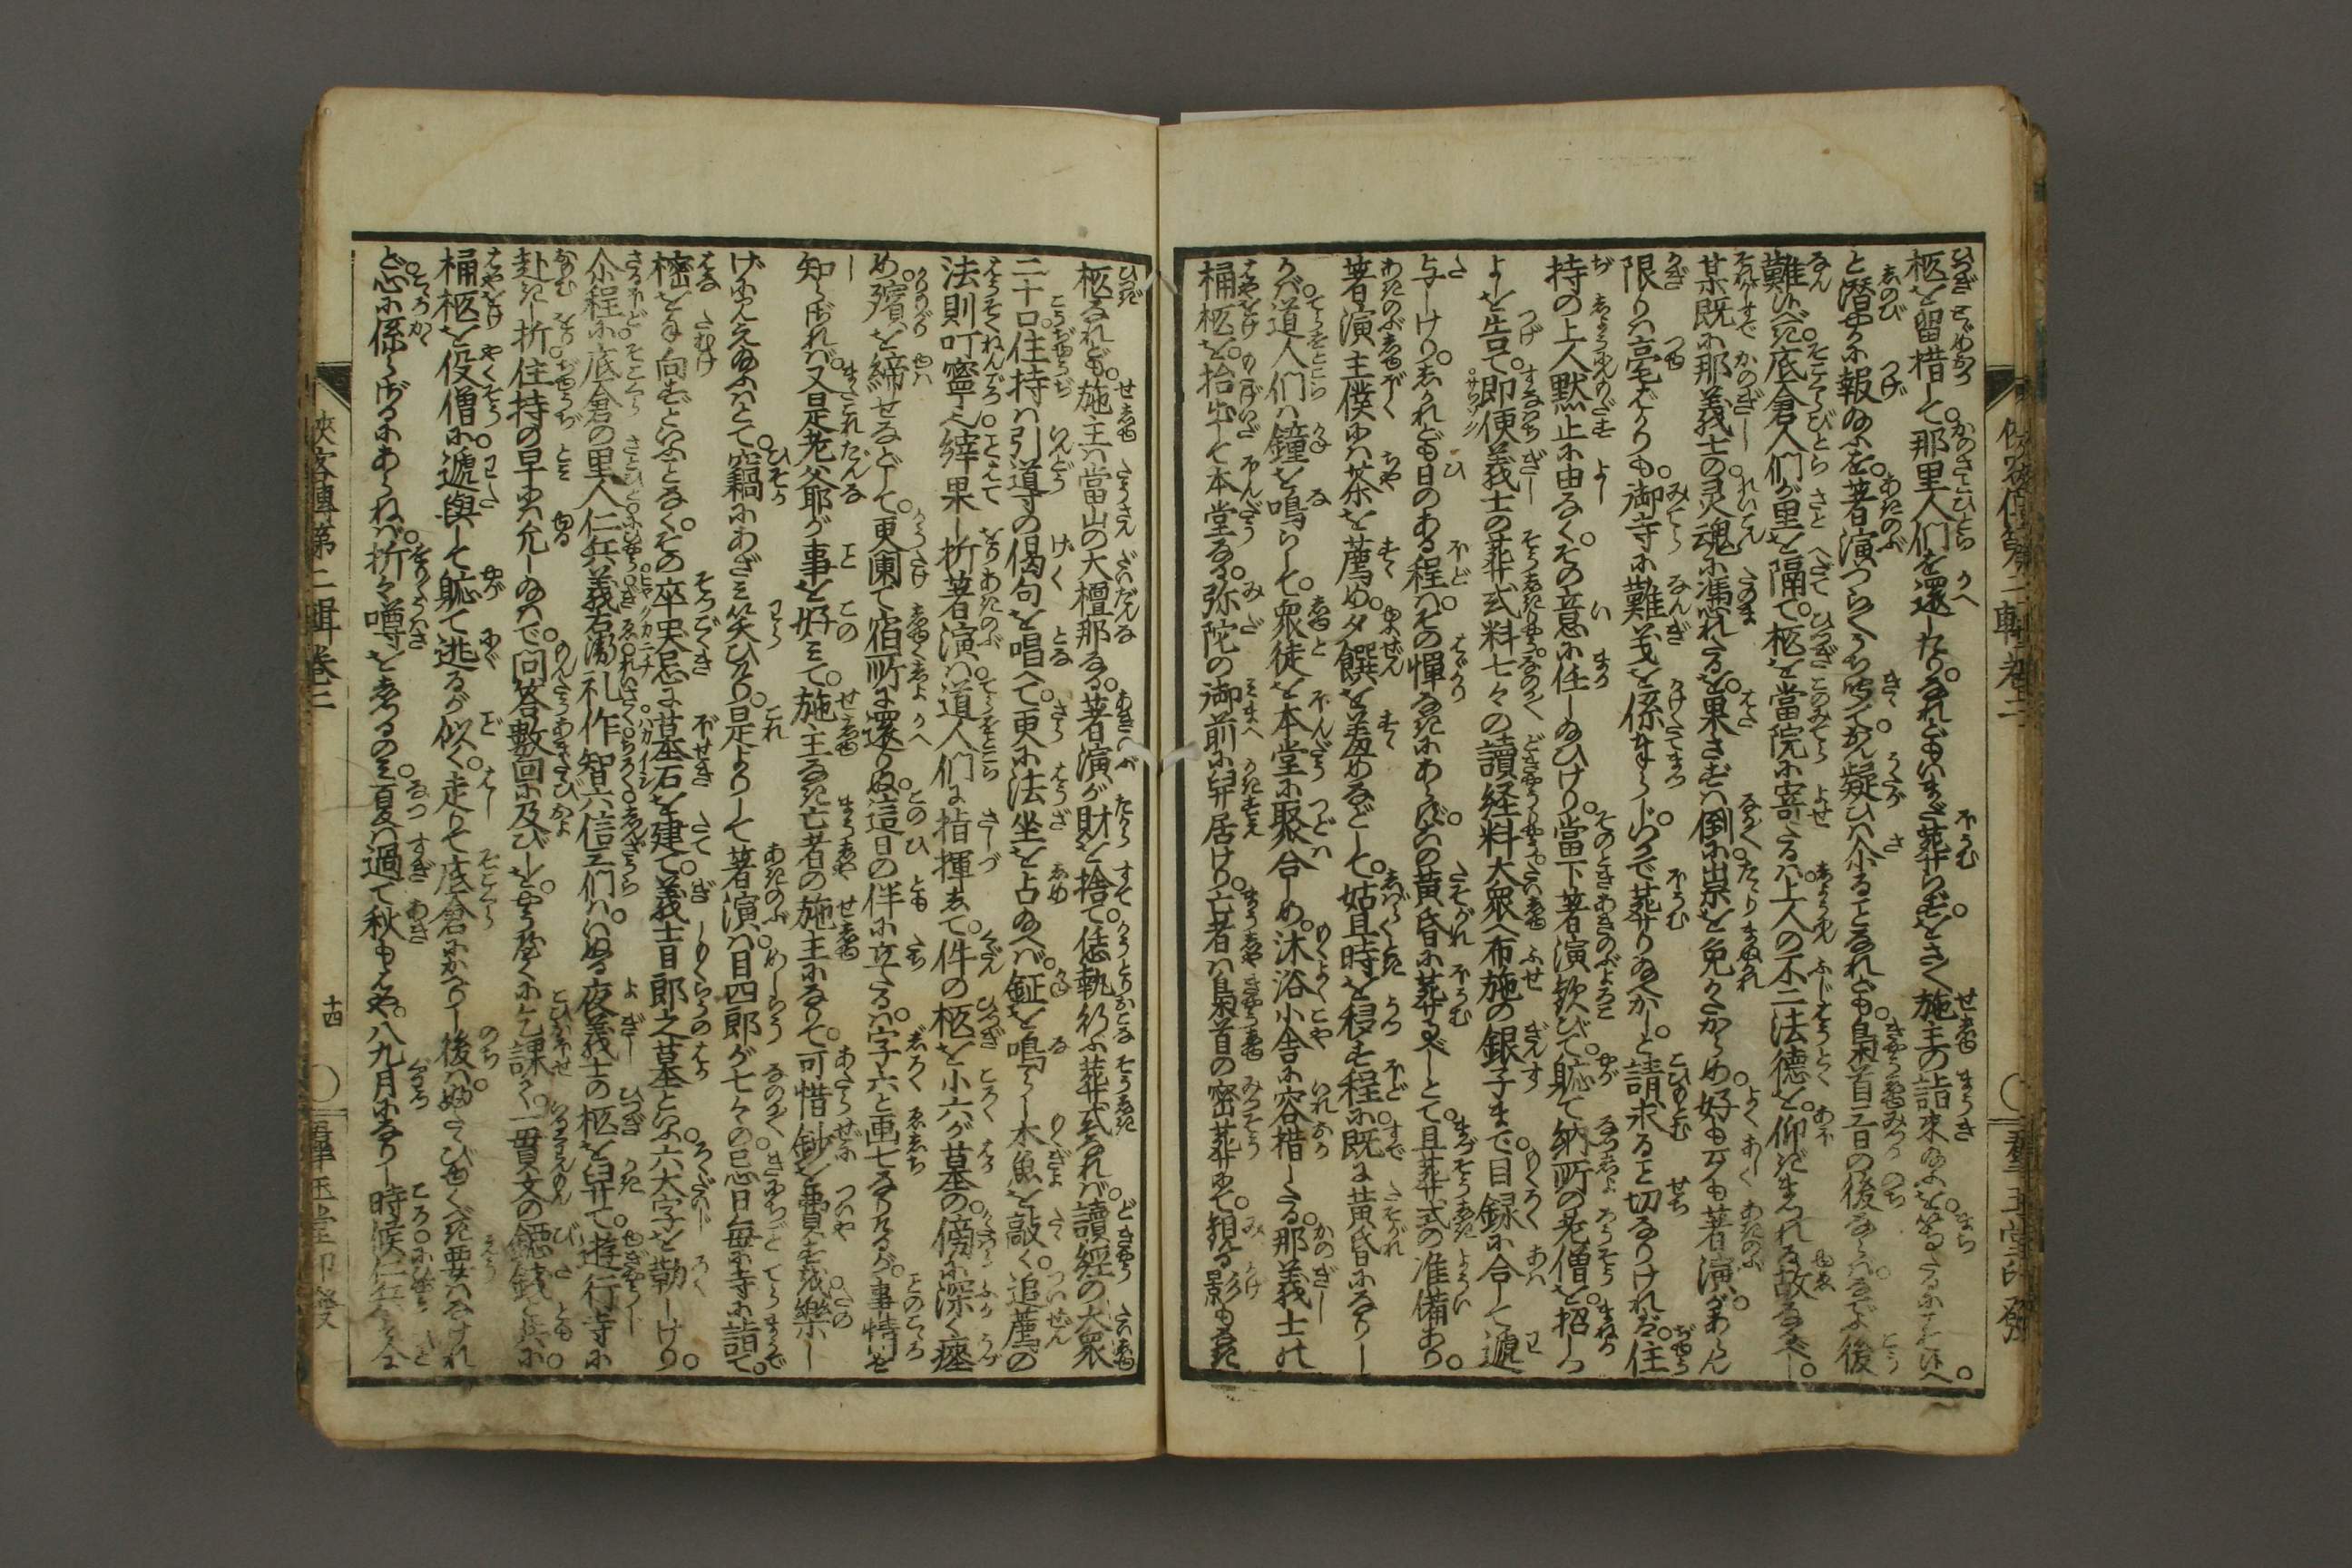 柩を留措して那里人們を還したり。なれどもいまだ葬らずをさく施主の詣来ぬるを
と潜やかに報ぬるを。著演つら〳〵うち聞て。疑ひは尓ることなれども梟首三日の後ならは後
難いべき。底倉人們が里を隔て。柩を當院に寄たるは。上人の不二法徳を仰ぎまつれる故なるべし。
某既に那義士の灵魂に馮れたるを。果さずは倒に祟を免れかたからめ好も歹も著演があらん
限りは亳ばかりも。御寺に難義を係まつらじ。いかで葬り給へかしと請求ること切なりければ。住
持の上人黙止に由なくその意に任しぬひけり。當下著演歓びて。軈て納所の老僧を招しつ
よしを告て。即便義士の葬式料七々の讀経料大衆へ布施の銀子まで。目録に合して遞
与しけり。されども日のある程は。その憚なきにあらねば。黄昏に葬るべしとて。且葬式の准備あり。
著演主僕には茶を薦め。夕饌を羞めなどして。姑且時を移す程に既に黄昏になりし
かば道人們は鐘を鳴らして。衆徒を本堂に聚合しめ。沐浴小舎に容措したる。那義士の
桶柩を。抬出して本堂なる。弥陀の御前に舁居けり。亡者は梟首の密葬にて。親る影もなき
侠客傳第二輯巻三
柩なれども。施主は當山の大檀那なる。著演が財を捨て。恁執行ふ葬式なれば。讀經の大衆
二十口。住持は引導の偈句を唱へて。更に法坐を占給へば。鉦を鳴らし木魚を敲く。追薦の
法則叮寧に。縡果し折著演は。道人們に指揮して。件の柩を小六が墓の。傍に深く瘞
め。殯を締せなどして。更闌て宿所に還りぬ。這日の伴に立たるは。字六と画七なりけるが。事情を
知らざれば。又是老爺が事を好みて。施主なき亡者の施主になりて。可惜鈔を費を戯樂に
げにみえ給ふはとて。竊にあざみ笑ひけり。是よりして著演は。目四郎が七々の忌日毎に寺に詣て。
樒を手向ずといふことなく。その卒哭忌に墓石を建て。義士目郎之墓といふ六大字を勒しけり。
尓程に底倉の里人仁兵衛義右衛門礼作智六信三们は。いぬる夜義士の柩を舁せて。遊行寺に
赴きし折。住持の早には允し給はで。問答數回に及びしを。やうやくに乞課て。一貫文の錢と共に
桶柩を役僧に遞與して。軈て逃るが似く。走りて底倉にかへりし後は。ふたゝびゆくべき要はなけれ
ど。心に係らざるにあらねば。折々噂をするのみ夏は過て秋もはや。八九月になりし時候仁兵衛
侠客傳第二輯巻三
十四
群玉堂印發